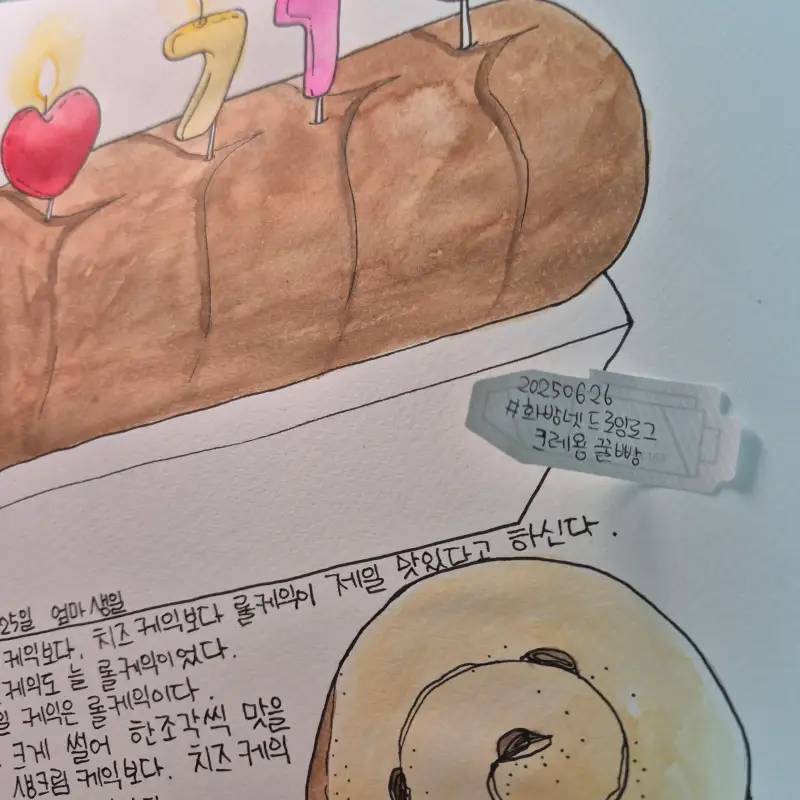 77
20250626
#화방넷 드로잉로그
크레용 꿀빵
25일 엄마 생일
케익보다. 치즈케익보다 롤케익이 제일 맛있다고 하신다.
케익도 늘 롤케익이었다.
케익은 롤케익이다.
크게 썰어 한조각씩 맛을
생크림 케익보다. 치즈 케익